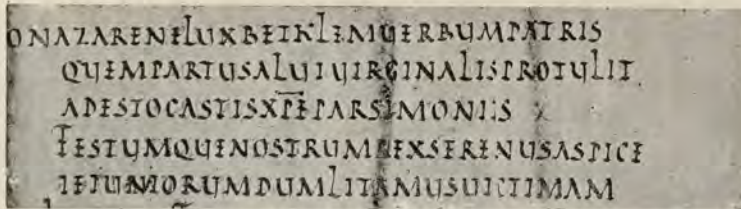 ONAZARENELUXBETHLEMUERBUMPATRIS
QUEMPARTUSALUIUIRGINALISPROTULIT
ADESTOCASTISXP̅E̅PARSIMONIIS
FESTUMQUENOSTRUMREXSERENUSASPICE
IEIUNIORUMDUMLITAMUSUICTIMAM